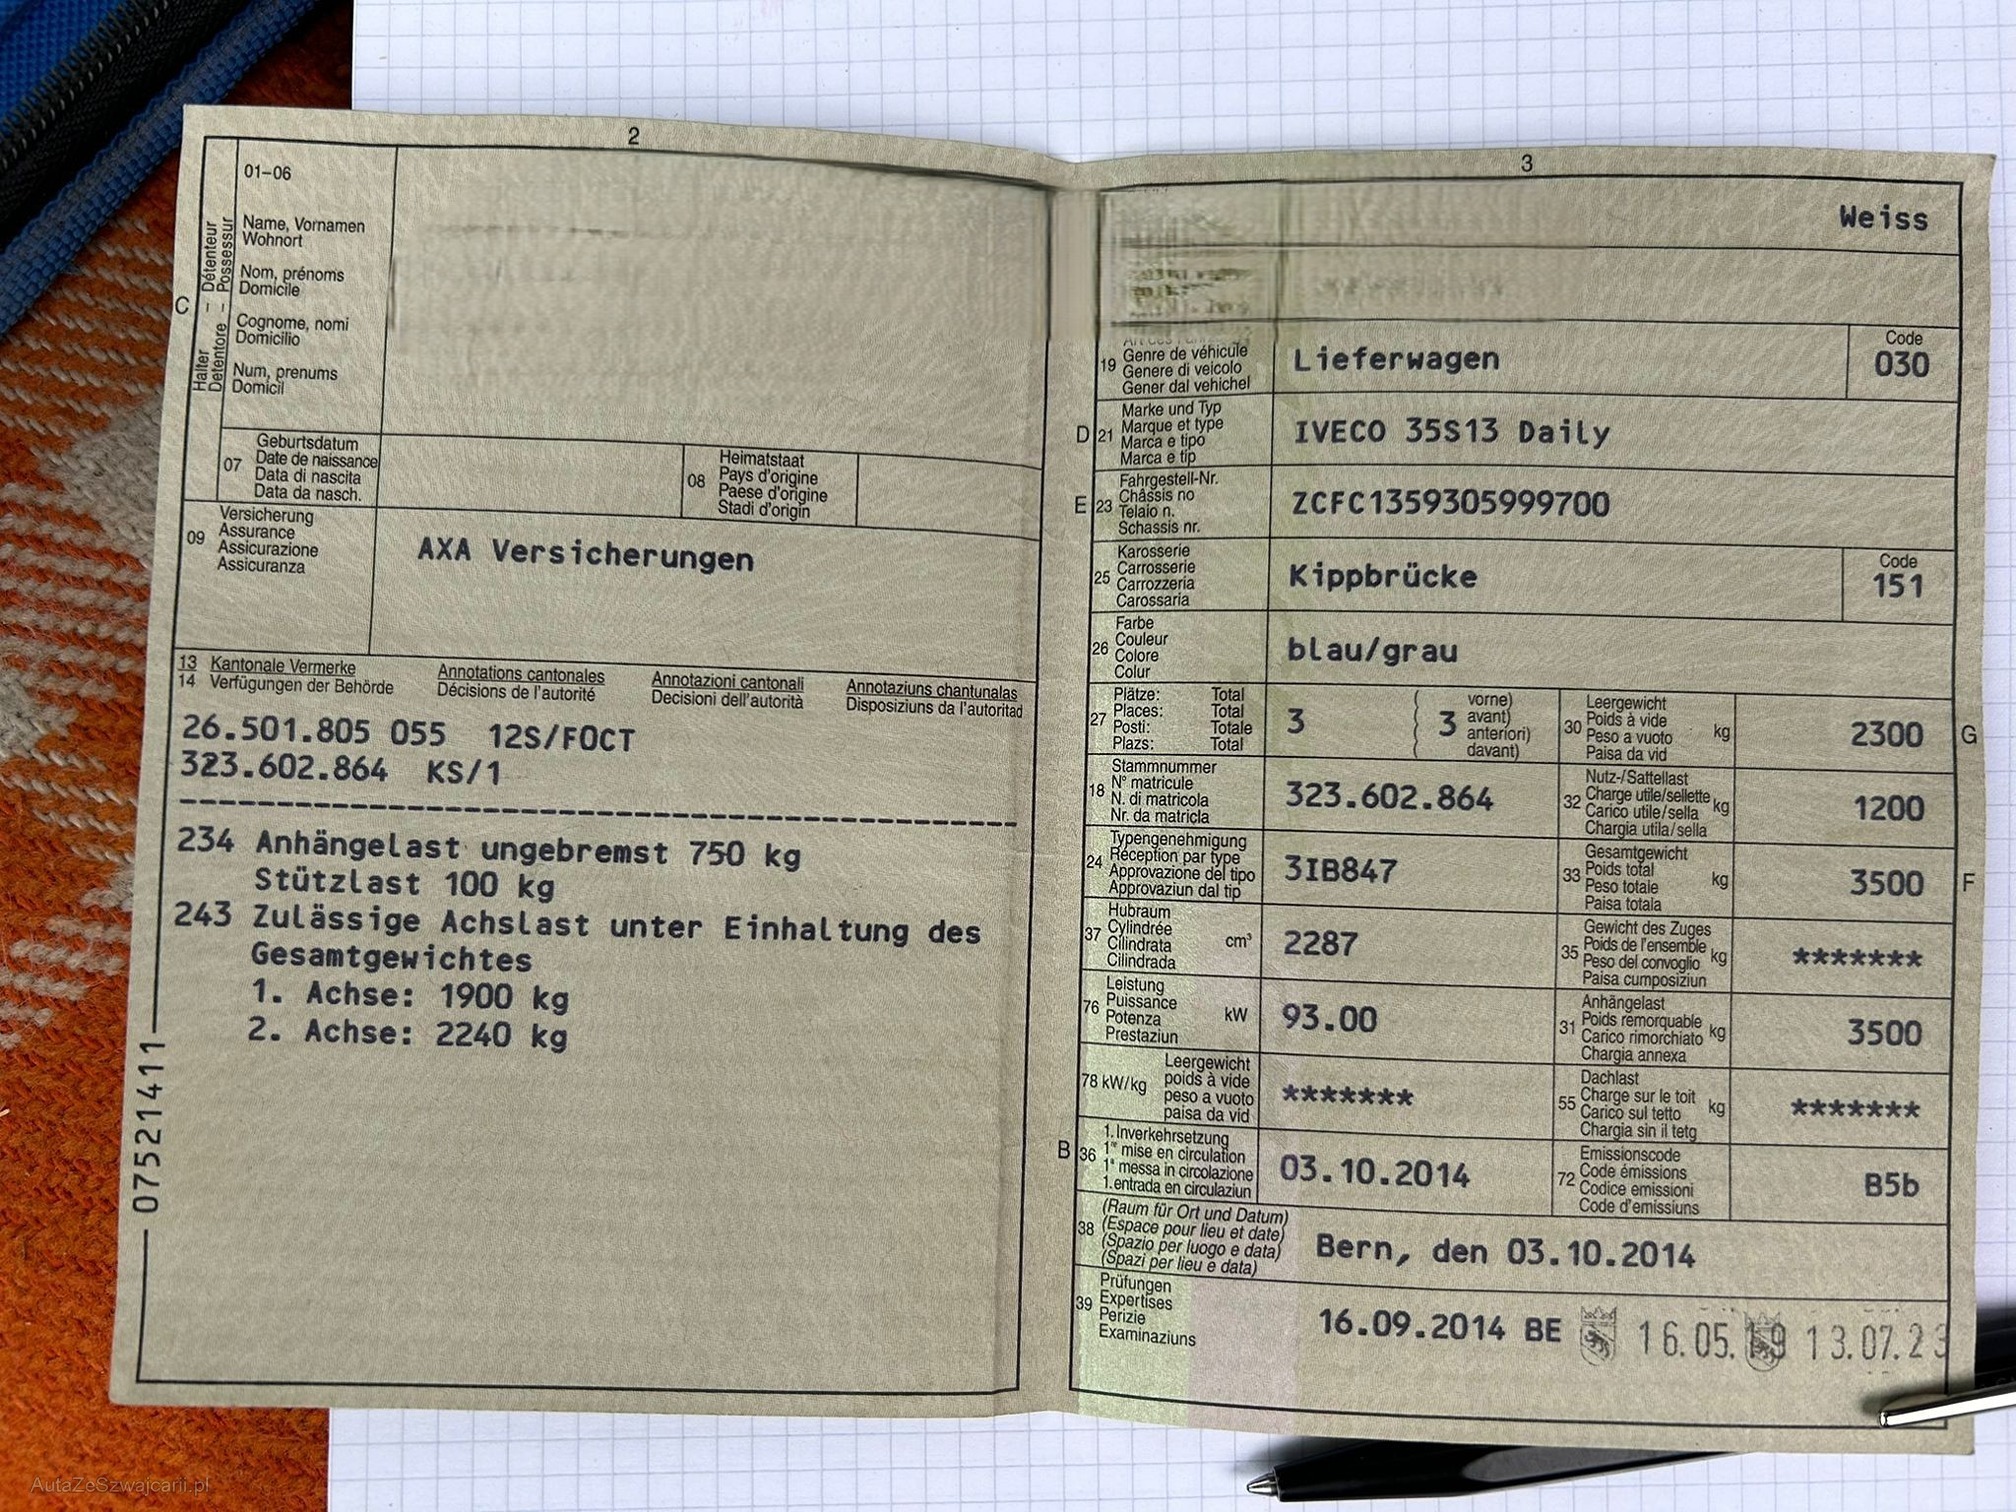 2
01–06
Name, Vornamen
Wohnort
Nom, prénoms
Domicile
Cognome, nomi
Domicilio
Num, prenums
Domicil
C
Halter – Détenteur
Detentore – Possessur
07
Geburtsdatum
Date de naissance
Data di nascita
Data da nasch.
08
Heimatstaat
Pays d'origine
Paese d'origine
Stadi d'origin
09
Versicherung
Assurance
Assicurazione
Assicuranza
AXA Versicherungen
13 Kantonale Vermerke Annotations cantonales Annotazioni cantonali Annotaziuns chantunalas
14 Verfügungen der Behörde Décisions de l'autorité Decisioni dell'autorità Disposiziuns da l'autoritad
26.501.805 055 12S/FOCT
323.602.864 KS/1
234 Anhängelast ungebremst 750 kg
Stützlast 100 kg
243 Zulässige Achslast unter Einhaltung des
Gesamtgewichtes
1. Achse: 1900 kg
2. Achse: 2240 kg
07521411
3
Weiss
19
Genre de véhicule
Genere di veicolo
Gener dal vehichel
Lieferwagen
Code
030
D 21
Marke und Typ
Marque et type
Marca e tipo
Marca e tip
IVECO 35S13 Daily
E 23
Fahrgestell-Nr.
Châssis no
Telaio n.
Schassis nr.
ZCFC1359305999700
25
Karosserie
Carrosserie
Carrozzeria
Carossaria
Kippbrücke
Code
151
26
Farbe
Couleur
Colore
Colur
blau/grau
27
Plätze: Total
Places: Total
Posti: Totale
Plazs: Total
3
( 3 vorne)
avant)
anteriori)
davant)
30
Leergewicht
Poids à vide
Peso a vuoto
Paisa da vid
kg
2300
G
18
Stammnummer
N° matricule
N. di matricola
Nr. da matricla
323.602.864
32
Nutz-/Sattellast
Charge utile/sellette
Carico utile/sella
Chargia utila/sella
kg
1200
24
Typengenehmigung
Réception par type
Approvazione del tipo
Approvaziun dal tip
3IB847
33
Gesamtgewicht
Poids total
Peso totale
Paisa totala
kg
3500
F
37
Hubraum
Cylindrée
Cilindrata
Cilindrada
cm³
2287
35
Gewicht des Zuges
Poids de l'ensemble
Peso del convoglio
Paisa cumposiziun
kg
*******
76
Leistung
Puissance
Potenza
Prestaziun
kW
93.00
31
Anhängelast
Poids remorquable
Carico rimorchiato
Chargia annexa
kg
3500
78 kW/kg
Leergewicht
poids à vide
peso a vuoto
paisa da vid
*******
55
Dachlast
Charge sur le toit
Carico sul tetto
Chargia sin il tetg
kg
*******
B 36
1. Inverkehrsetzung
1re mise en circulation
1a messa in circolazione
1. entrada en circulaziun
03.10.2014
72
Emissionscode
Code émissions
Codice emissioni
Code d'emissiuns
B5b
38
(Raum für Ort und Datum)
(Espace pour lieu et date)
(Spazio per luogo e data)
(Spazi per lieu e data)
Bern, den 03.10.2014
39
Prüfungen
Expertises
Perizie
Examinaziuns
16.09.2014 BE 16.05.19 13.07.23
AutaZeSzwajcarii.pl